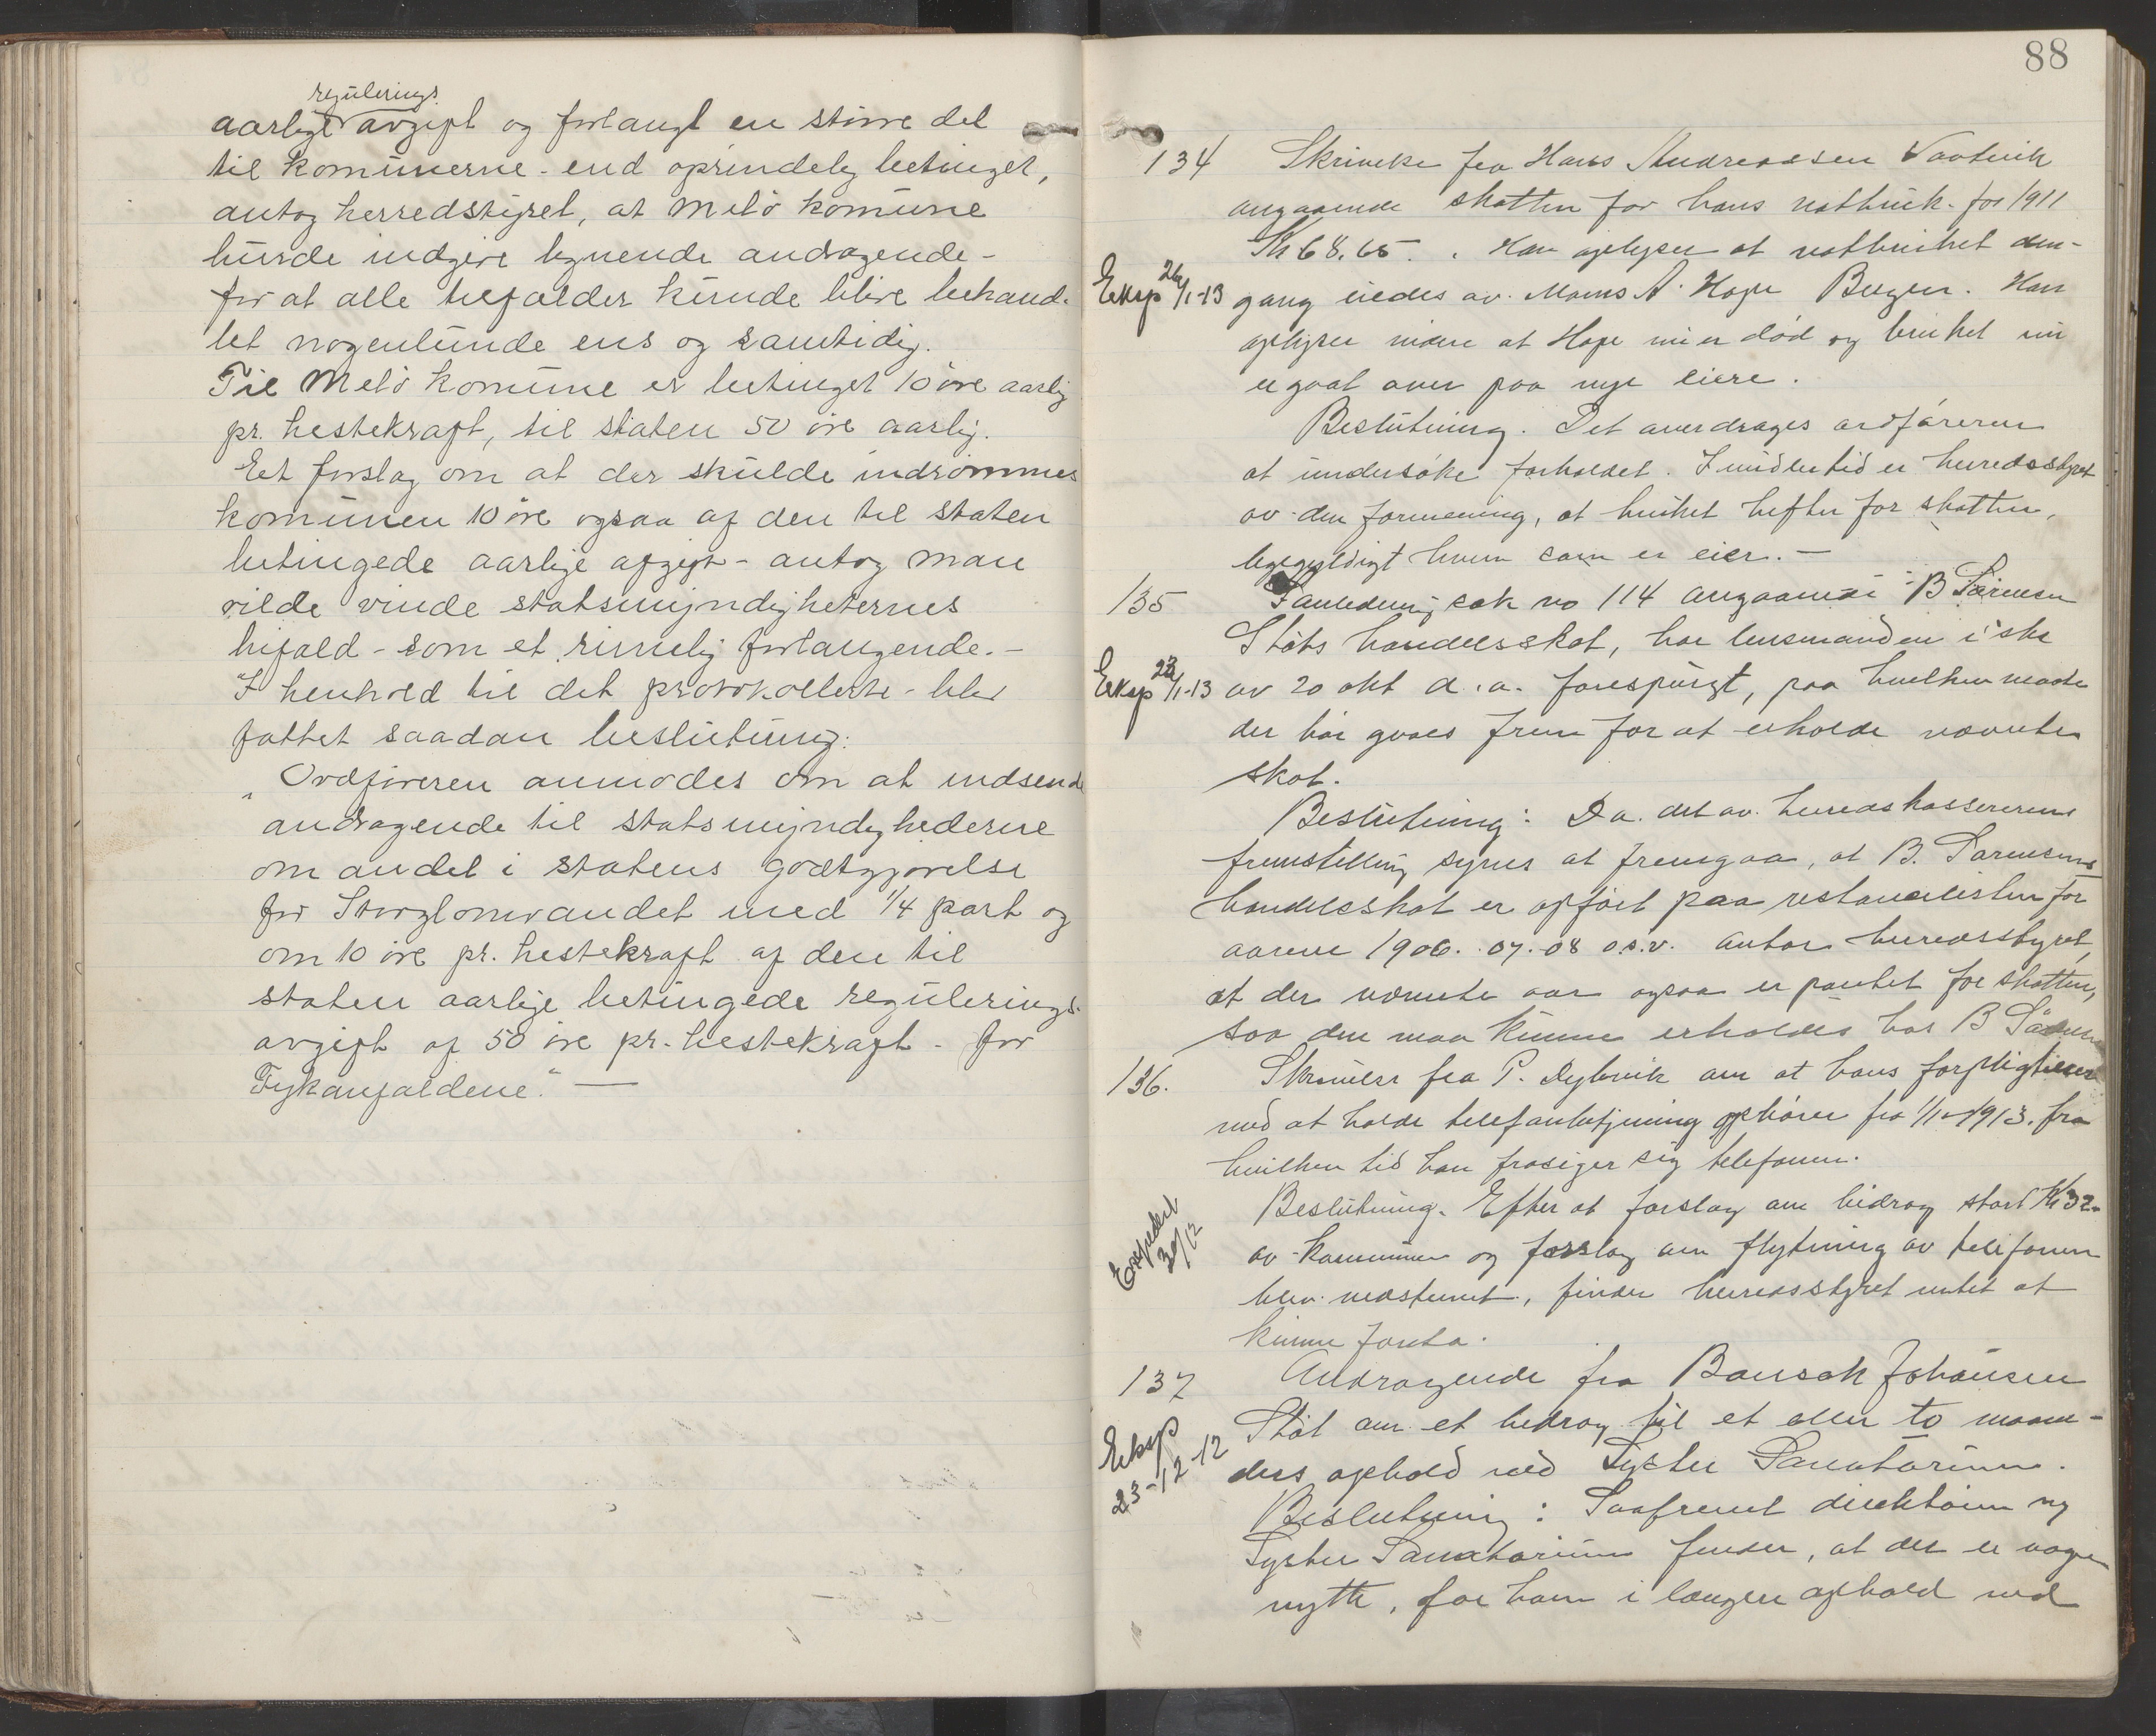 regulerings
aarligt avgift og forlangt en större del
til komunerne - end oprindelig betinget,
antog herredstyret, at Melö komune
burde indgive lignende andragende -
for at alle tilfælder kunde blive behand-
let nogenlunde ens og samtidig.
Til Melö komune er betinget 10 öre aarlig
pr. hestekraft, til staten 50 öre aarlig.
Et forslag om at der skulde indrömmes
komunen 10 öre ogsaa af den til staten
betingede aarlige afgift - antog man
vilde vinde statsmyndigheternes
bifald - som et rimelig forlangende. -
I henhold til det protokollerte - blev
fattet saadan beslutning:
„Ordföreren anmodes om at indsende
andragende til statsmyndighederne
om andel i statens godtgjörelse
for Storglomvandet med 1/4 part og
om 10 öre pr. hestekraft af den til
staten aarlige betingede regulerings-
avgift af 50 öre pr. hestekraft - for
Fykanfaldene." —
88
134 Skrivelse fra Hans Andreassen Vaatvik
angaaende skatten for hans notbruk for 1911
Kr 68,65. . Han oplyser at notbruket den-
Eksp 26/1-13 gang eiedes av Mons A. Hope Bergen. Han
oplyser videre at Hope nu er död og bruket nu
er gaat over paa nye eiere.
Beslutning. Det overdrages ordföreren
at undersöke forholdet. Imidlertid er herredsstyret
av den formening, at bruket hefter for skatten,
ligegyldigt hvem som er eier. —
135 I anledning sak no 114 angaaende B Sörensen
Stöts handelsskat, har lensmanden i skr
Eksp 22/1-13 av 20 okt d.a. forespurgt, paa hvilken maate
der bör gaaes frem for at erholde nævnte
skat.
Beslutning: Da det av herredskassererens
fremstilling synes at fremgaa, at B. Sörensens
handelsskat er opfört paa restancelisten for
aarene 1906. 07. 08 o.s.v. antar herredsstyret,
at der nævnte aar ogsaa er pantet for skatten,
saa den maa kunne erholdes hos B Sörensen
136. Skrivelse fra P. Dybvik om at hans forpligtelser
med at holde telefonbetjening ophörer fra 1/1 1913, fra
hvilken tid han frasiger sig telefonen.
Beslutning. Efter at forslag om bidrag stort Kr 32-
Expedert 30/12
av kommunen og forslag om flytning av telefonen
blev nedstemt, finder herredsstyret intet at
kunne foreta.
137 Andragende fra Johansen
Stöt om et bidrag til et eller to maane-
Eksp 23-12-12
ders ophold ved Lyster Sanatorium.
Beslutning: Saafremt direktören ny
Lyster Sanatorium finder, at det er nogen
nytte, for ham i længere ophold ved